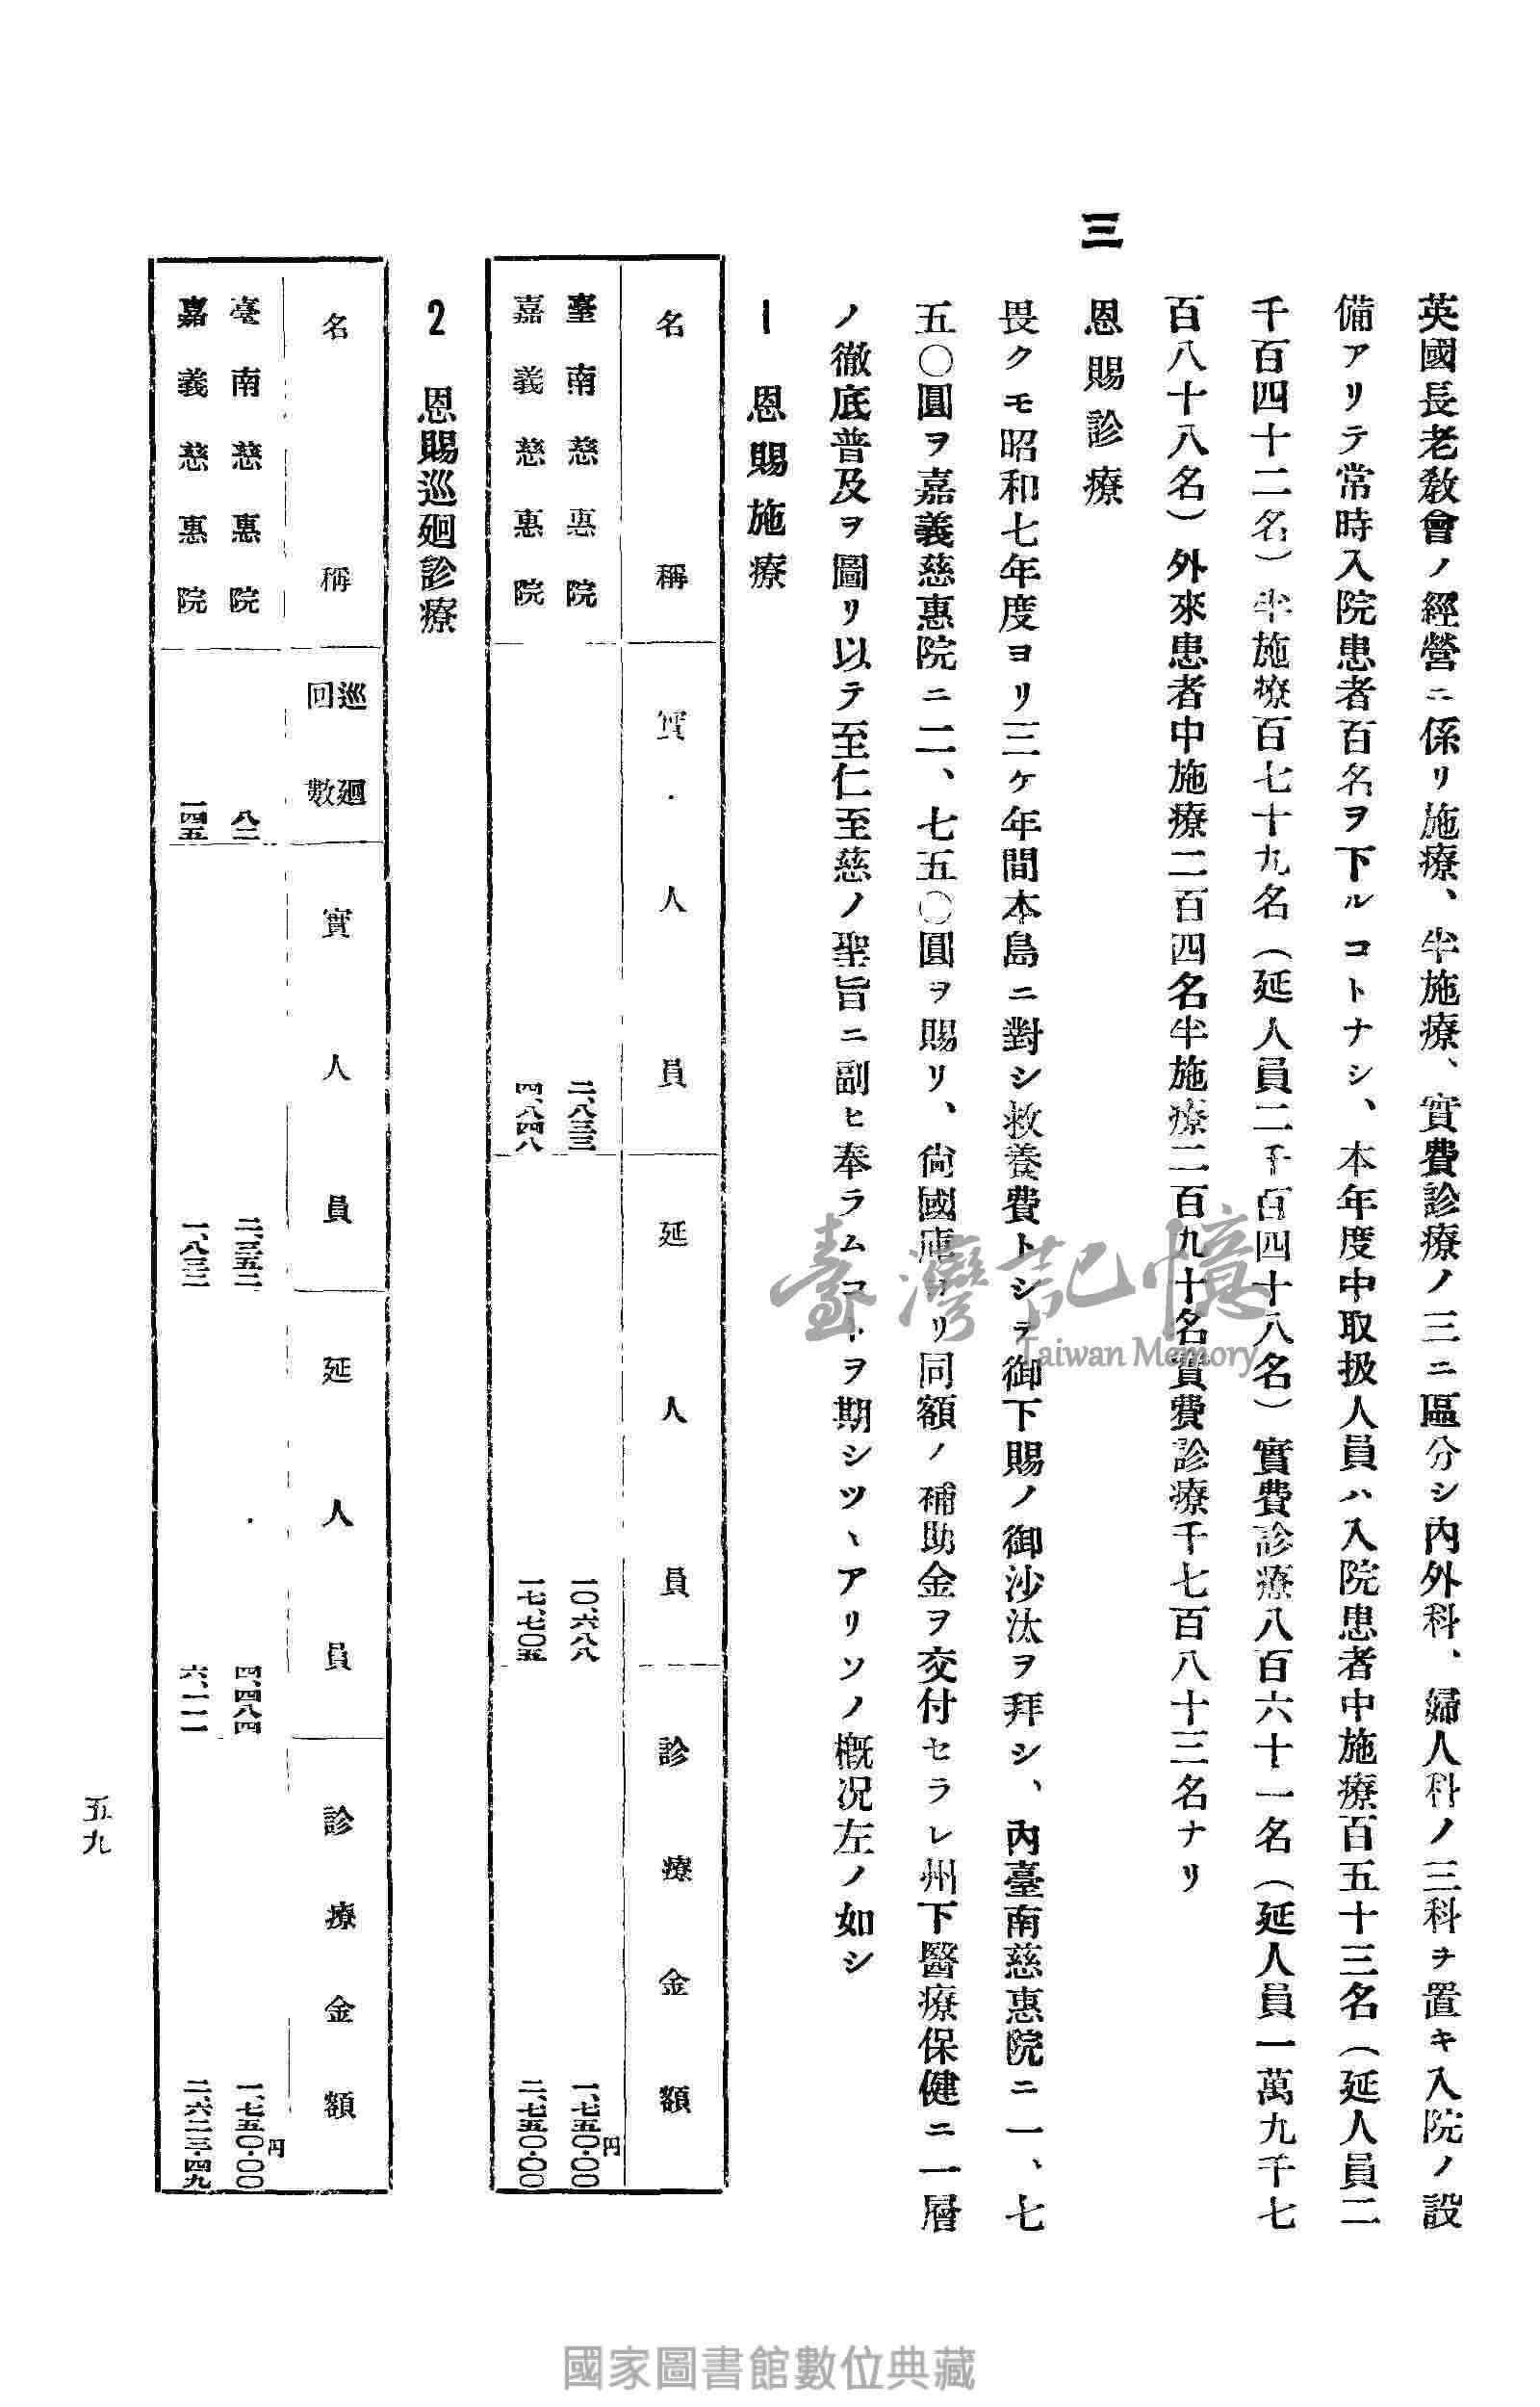 英國長老敎會ノ經營ニ係リ施療、半施療、實費診療ノ三ニ區分シ內外科、婦人科ノ三科ヲ置キ入院ノ設
備アリテ常時入院患者百名ヲ下ルコトナシ、本年度中取扱人員ハ入院患者中施療百五十三名（延人員二
千百四十二名）半施療百七十九名（延人員二千百四十八名）實費診療八百六十一名（延人員一萬九千七
百八十八名）外來患者中施療二百四名半施療二百九十名實費診療千七百八十三名ナリ
三 恩賜診療
畏クモ昭和七年度ヨリ三ケ年間本島ニ對シ救養費トシテ御下賜ノ御沙汰ヲ拜シ、內臺南慈惠院ニ一、七
五〇圓ヲ嘉義慈惠院ニ二、七五〇圓ヲ賜リ、尙國庫ヨリ同額ノ補助金ヲ交付セラレ州下醫療保健ニ一層
ノ徹底普及ヲ圖リ以テ至仁至慈ノ聖旨ニ副ヒ奉ラムコトヲ期シツヽアリソノ槪况左ノ如シ
1 恩賜施療
名稱 實人員 延人員 診療金額
臺南慈惠院 二、八三三 一〇、六八八 一、七五〇・〇〇円
嘉義慈惠院 四、八四八 一七、七〇五 二、七五〇・〇〇
2 恩賜巡廻診療
名稱 巡廻回數 實人員 延人員 診療金額
臺南慈惠院 八二 二、三五二 四、四八四 一、七五〇・〇〇円
嘉義慈惠院 一四五 一、八三二 六、一一一 二、六二三・四九
五九
臺灣記憶
Taiwan Memory
國家圖書館數位典藏